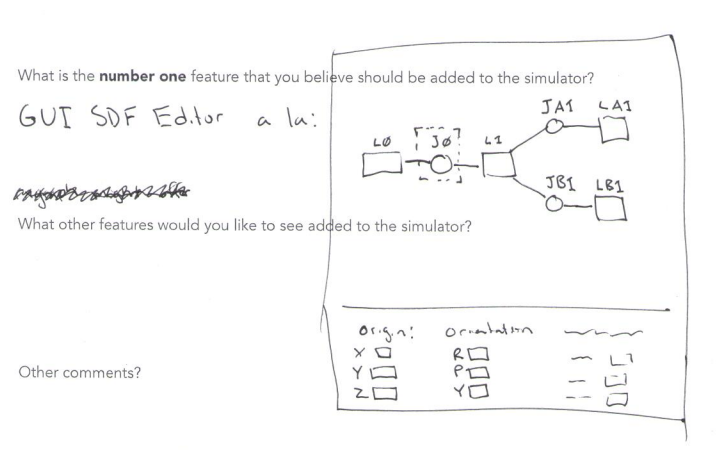 What is the number one feature that you believe should be added to the simulator?
GUI SDF Editor a la:
JA1 LA1
LØ JØ L1
JB1 LB1
What other features would you like to see added to the simulator?
Origin: Orientation
X R
Y P
Z Y
Other comments?